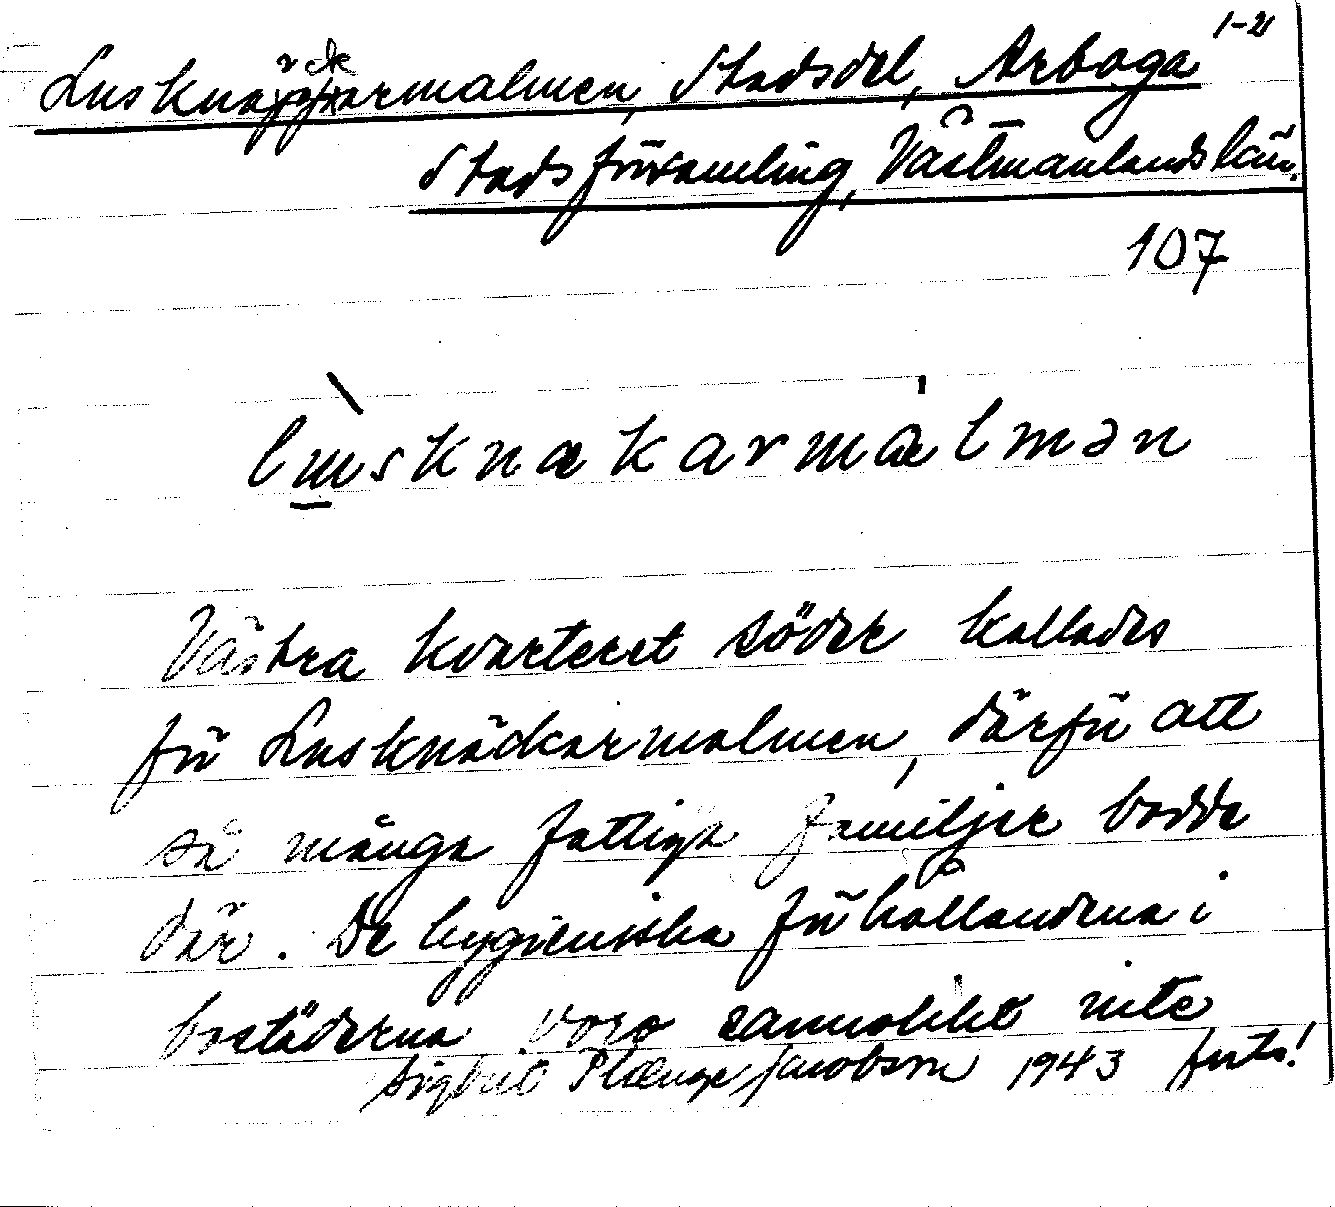 1-21
Lusknäckarmalmen, Stadsdel, Arboga
Stadsförsamling, Västmanlands län.
107
lusknækarmalmən
Västra kvarteret söder kallades
för Lusknäckarmalmen, därför att
så många fattiga familjer bodde
där. De hygieniska förhållandena i
bostäderna voro sannolikt inte
Sigbrit Plænge Jacobson 1943 forts!